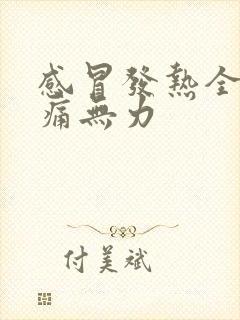 感冒發熱全
痛無力
付美斌